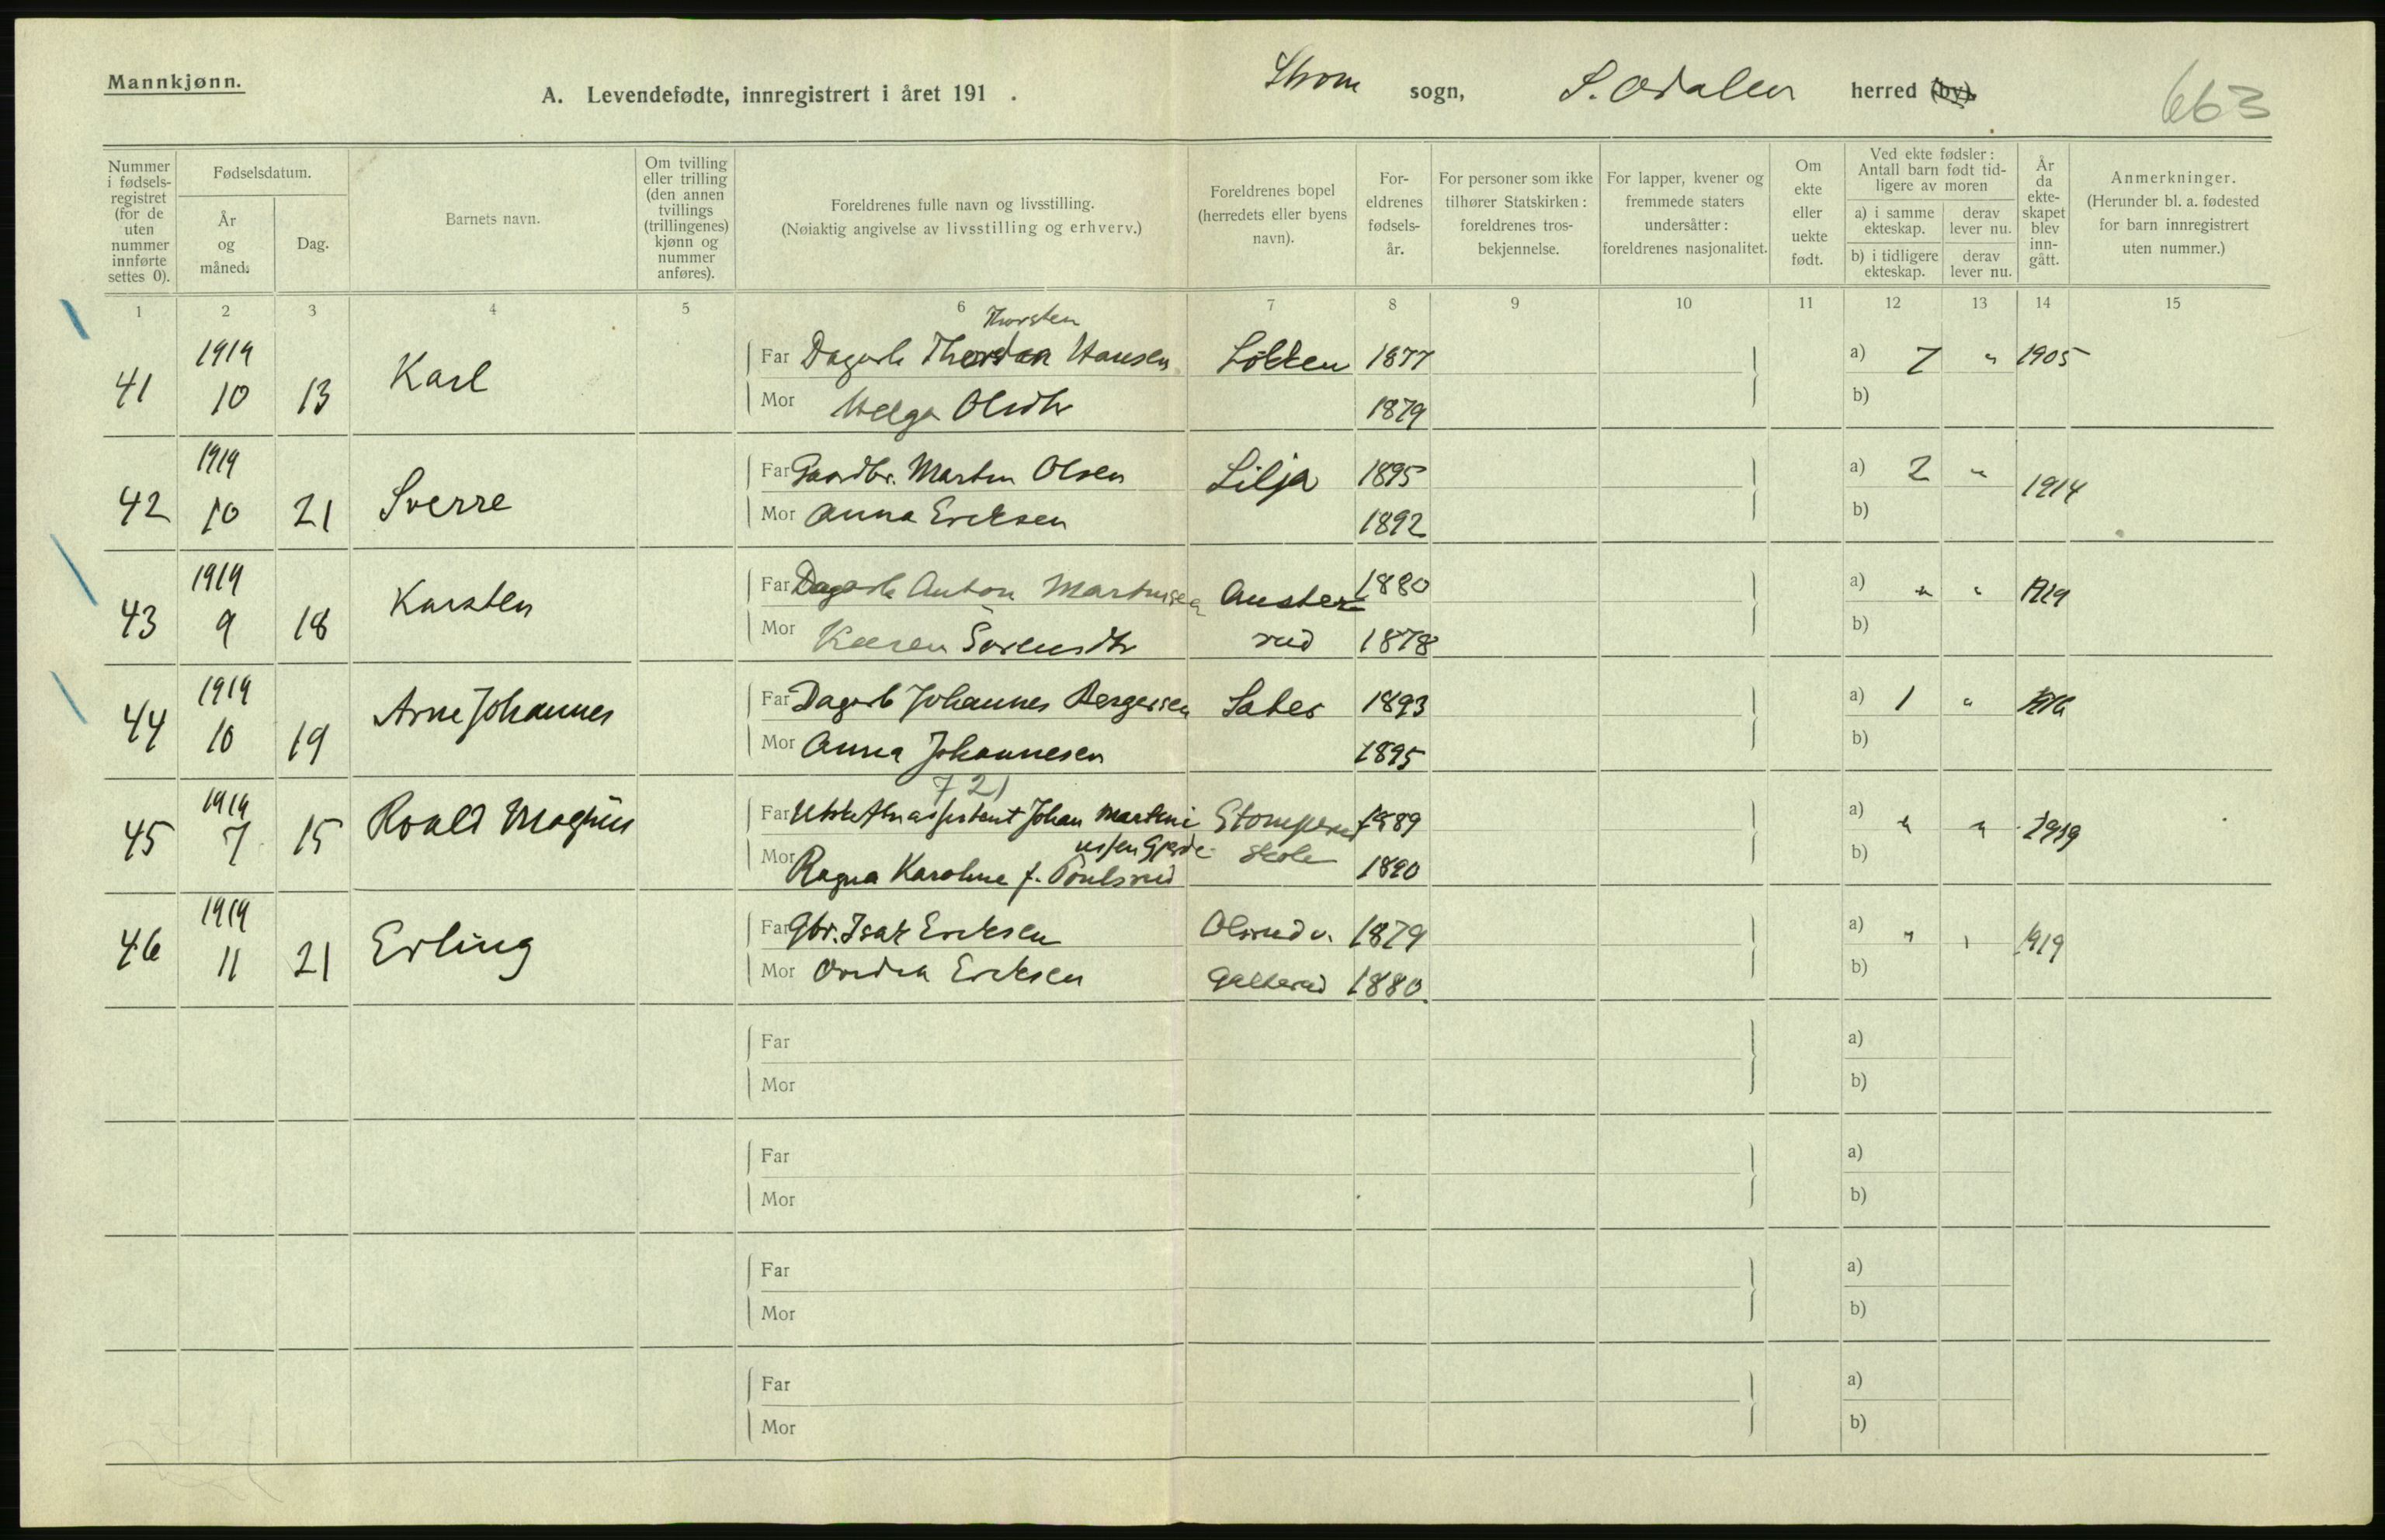 Mannkjønn.
A. Levendefødte, innregistrert i året 191 .
Strøm sogn, S. Odalen herred (by).
663
Nummer i fødsels-registret (for de uten nummer innførte settes 0).
Fødselsdatum.
År og måned.
Dag.
Barnets navn.
Om tvilling eller trilling (den annen tvillings (trillingenes) kjønn og nummer anføres).
Foreldrenes fulle navn og livsstilling.
(Nøiaktig angivelse av livsstilling og erhverv.)
Foreldrenes bopel (herredets eller byens navn).
For-eldrenes fødsels-år.
For personer som ikke tilhører Statskirken: foreldrenes tros-bekjennelse.
For lapper, kvener og fremmede staters undersåtter: foreldrenes nasjonalitet.
Om ekte eller uekte født.
Ved ekte fødsler: Antall barn født tid-ligere av moren
a) i samme ekteskap.
derav lever nu.
b) i tidligere ekteskap.
derav lever nu.
År da ekte-skapet blev inn-gått.
Anmerkninger.
(Herunder bl. a. fødested for barn innregistrert uten nummer.)
1 2 3 4 5 6 7 8 9 10 11 12 13 14 15
Thorsten
41 1919 10 13 Karl Far Dagarb Hansen Løkken 1877 a) 7 " 1905
Mor Helga Olsdtr 1879 b)
42 1919 10 21 Sverre Far Gaardbr. Martin Olsen Lilja 1895 a) 2 " 1914
Mor Anna Eriksen 1892 b)
43 1919 9 18 Karsten Far Dagarb Anton Martinsen Auster= 1880 a) " " 1919
Mor Karen Sørensdtr rud 1878 b)
44 1919 10 19 Arne Johannes Far Dagarb Johannes Bergersen Sater 1893 a) 1 "
Mor Anna Johannesen 1895 b)
721
45 1919 7 15 Roald Magnus Far assistent Johan Martini Stomperud 1889 a) " " 1919
ussen Gjerde skole
Mor Ragna Karoline f. Poulsrud 1890 b)
46 1919 11 21 Erling Far Gbr. Isak Eriksen Olsrud v. 1879 a) " " 1919
Mor Eriksen Galterud 1880. b)
Far a)
Mor b)
Far a)
Mor b)
Far a)
Mor b)
Far a)
Mor b)